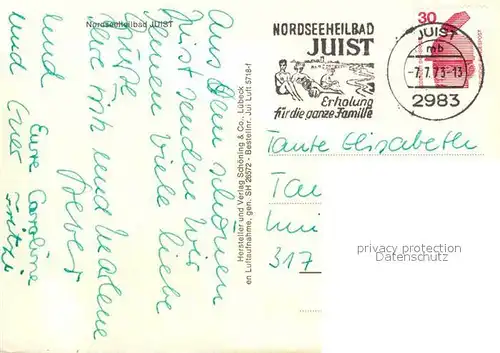 Nordseeheilbad JUIST
Aus dem schönen
Juist senden wir
viele liebe
Grüße
und
Eure Caroline
und Euer Fritzi
Hersteller und Verlag Schöning & Co., Lübeck
en Luftaufnahme, gen. SH 26572 - Bestellnr. Jui Luft 5718-f
NORDSEEHEILBAD
JUIST
Erholung
für die ganze Familie
30
JUIST
mb
-7.7.73-13
2983
Tante Elisabeth
Tan
317
privacy protection
Datenschutz